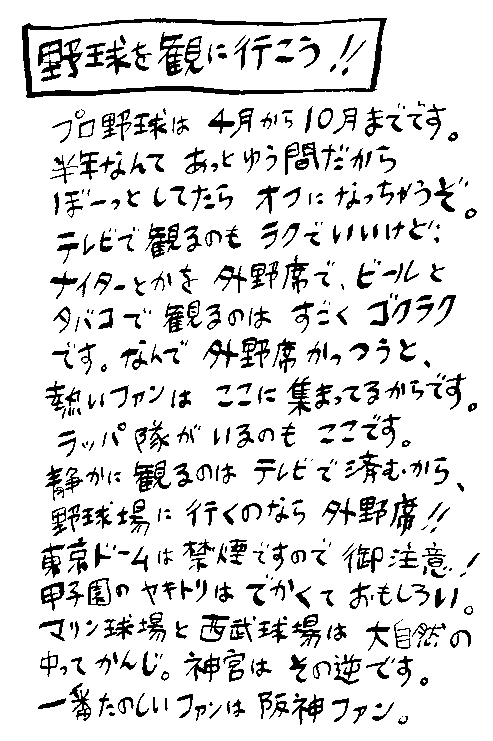 野球を観に行こう!!
プロ野球は 4月から10月までです。
半年なんて あっとゆう間だから
ぼーっとしてたら オフに なっちゃうぞ。
テレビで観るのも ラクでいいけど、
ナイターとかを 外野席で、ビールと
タバコで 観るのは すごく ゴクラク
です。なんで 外野席かっつうと、
熱いファンは ここに 集まってるからです。
ラッパ隊が いるのも ここです。
静かに観るのは テレビで済むから、
野球場に 行くのなら 外野席!!
東京ドームは禁煙ですので 御注意!
甲子園の ヤキトリは でかくて おもしろい。
マリン球場と 西武球場は 大自然の
中ってかんじ。神宮は その逆です。
一番たのしいファンは 阪神ファン。